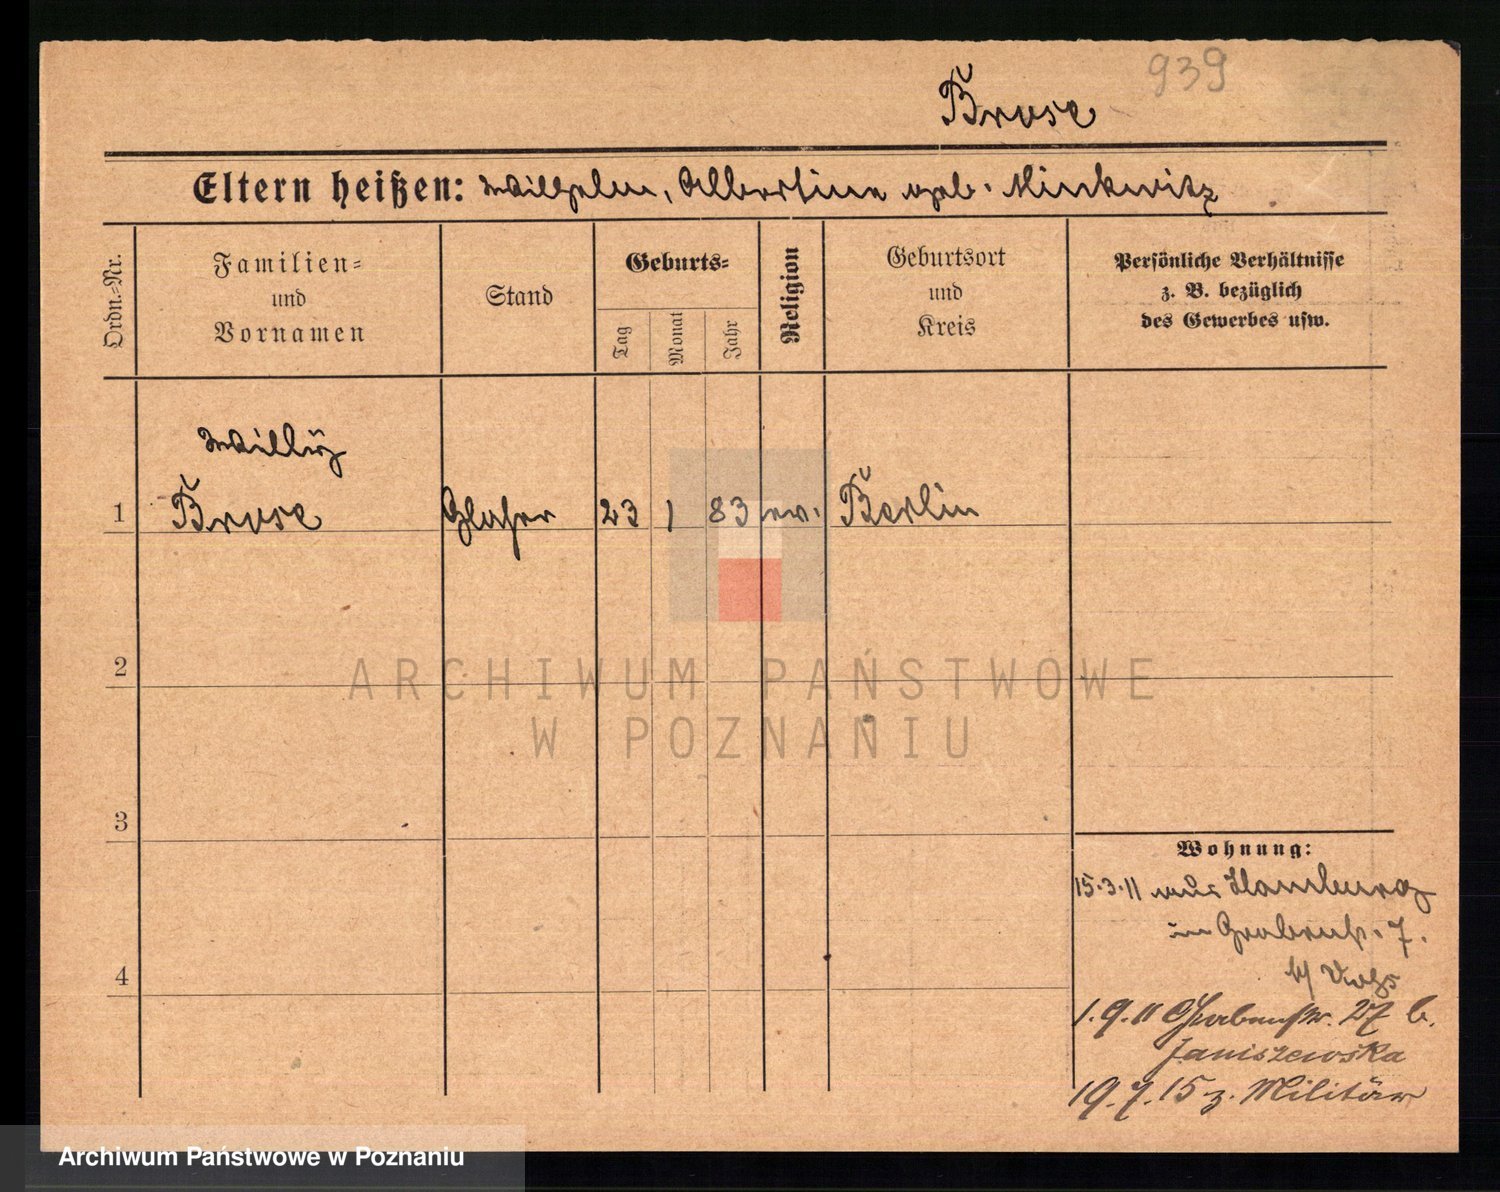 939
Brose
Eltern heißen: Wilhelm, Albertine geb. Minkwitz
Ordn.=Nr.
Familien=
und
Vornamen
Stand
Geburts=
Tag
Monat
Jahr
Religion
Geburtsort
und
Kreis
Persönliche Verhältnisse
z. B. bezüglich
des Gewerbes usw.
Willÿ
1 Brose Glaser 23 1 83 ev. Berlin
2
ARCHIWUM PAŃSTWOWE
W POZNANIU
3
Wohnung:
15.3.11 aus Hamburg
in Grabenst. 7.
b/
4
1.9.11 Grabenstr. 27 b.
Janiszewska
19.7.15 z. Militär
Archiwum Państwowe w Poznaniu